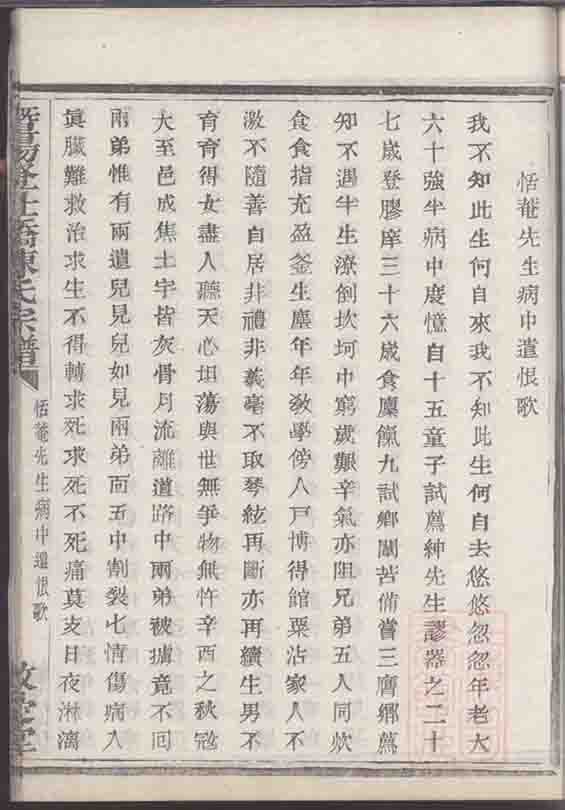 恬菴先生病中遣恨歌
我不知此生何自來我不知此生何自去悠悠忽忽年老大
六十強半病中度憶自十五童子試薦紳先生謬器之二十
七歲登膠庠三十六歲食廩餼九試鄉闈苦備嘗三膺鄉薦
知不遇半生潦倒坎坷中窮歲艱辛氣亦阻兄弟五人同炊
食食指充盈釜生塵年年敎學傍人戸博得館粟沾家人不
激不隨善自居非禮非義毫不取琴絃再斷亦再續生男不
育育得女盡人聽天心坦蕩與世無爭物無忤辛酉之秋寇
大至邑成焦土宇皆灰骨月流離道路中兩弟被擄竟不囘
兩弟惟有兩遺兒見兒如見兩弟面五中割裂七情傷病入
眞臟難救治求生不得轉求死求死不死痛莫支日夜淋漓
暨陽登仕橋陳氏宗譜
恬菴先生病中遣恨歌